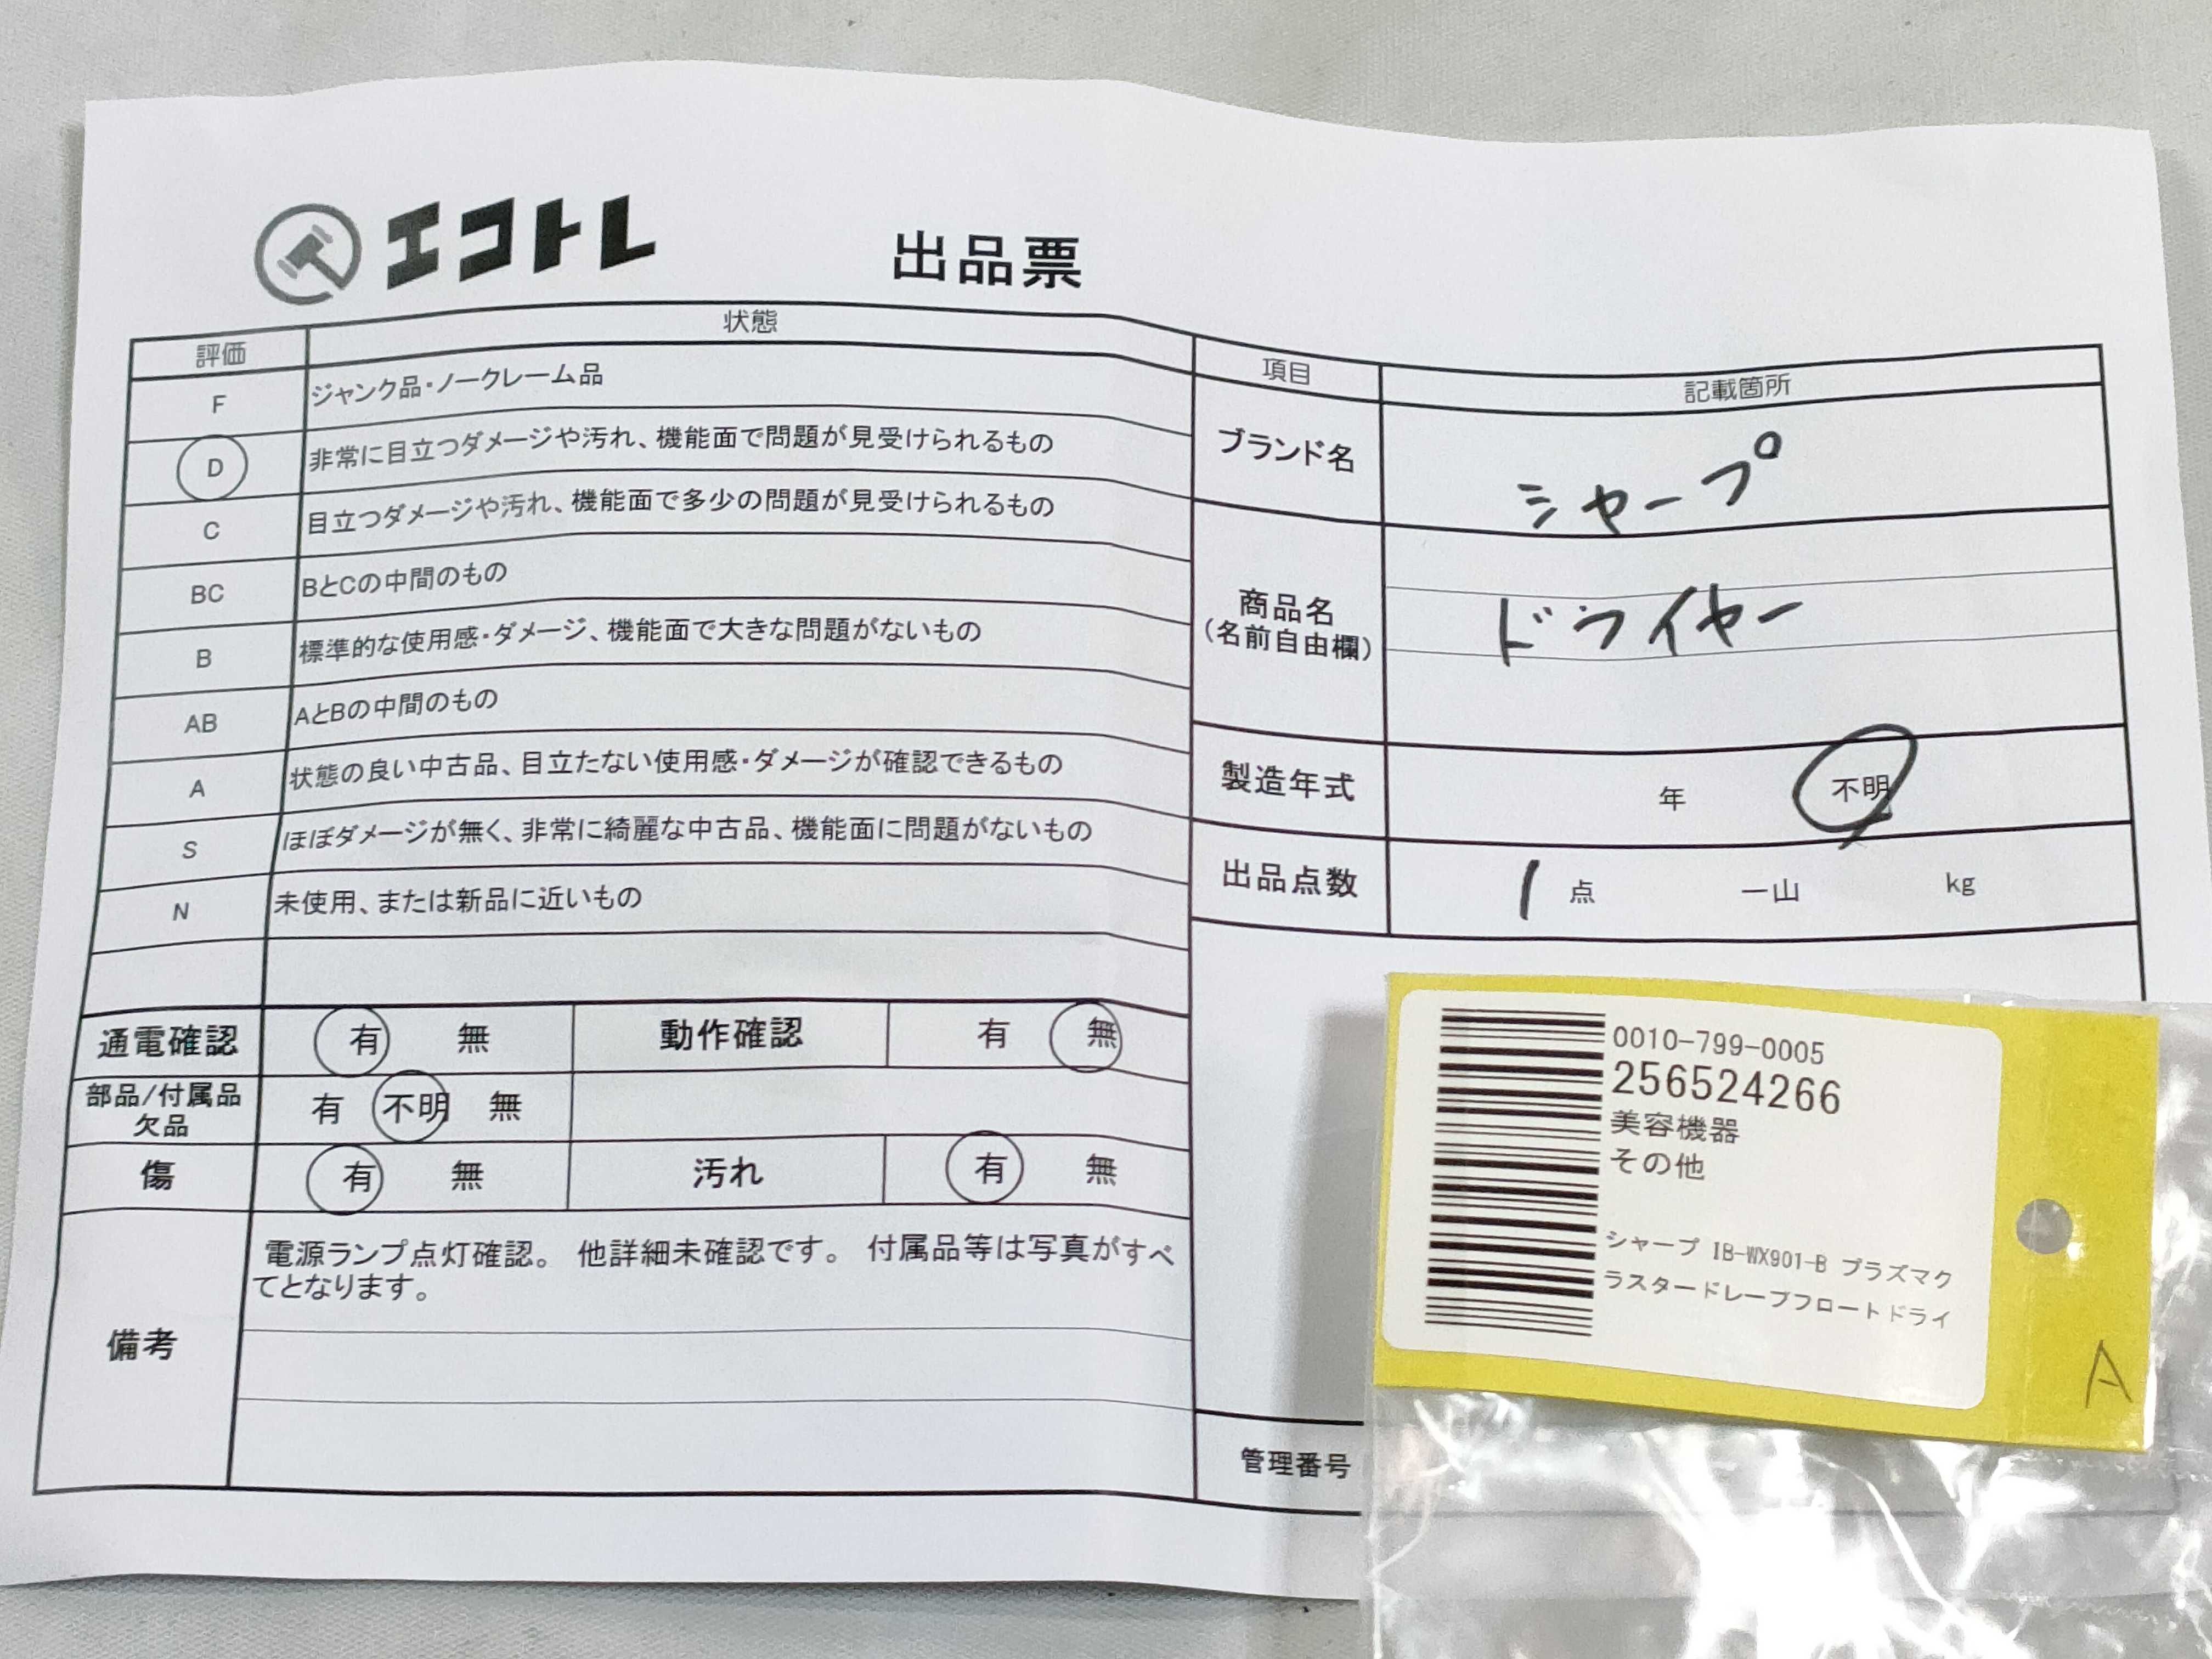 エコトレ
出品票
評価 状態
F ジャンク品・ノークレーム品
D 非常に目立つダメージや汚れ、機能面で問題が見受けられるもの
C 目立つダメージや汚れ、機能面で多少の問題が見受けられるもの
BC BとCの中間のもの
B 標準的な使用感・ダメージ、機能面で大きな問題がないもの
AB AとBの中間のもの
A 状態の良い中古品、目立たない使用感・ダメージが確認できるもの
S ほぼダメージが無く、非常に綺麗な中古品、機能面に問題がないもの
N 未使用、または新品に近いもの
通電確認 有 無 動作確認 有 無
部品/付属品
欠品 有 不明 無
傷 有 無 汚れ 有 無
備考
電源ランプ点灯確認。 他詳細未確認です。 付属品等は写真がすべ
てとなります。
項目 記載箇所
ブランド名 シャープ
商品名
(名前自由欄)
ドライヤー
製造年式 年 不明
出品点数 1 点 一山 kg
管理番号
0010-799-0005
256524266
美容機器
その他
シャープ IB-WX901-B プラズマク
ラスタードレープフロートドライ
A